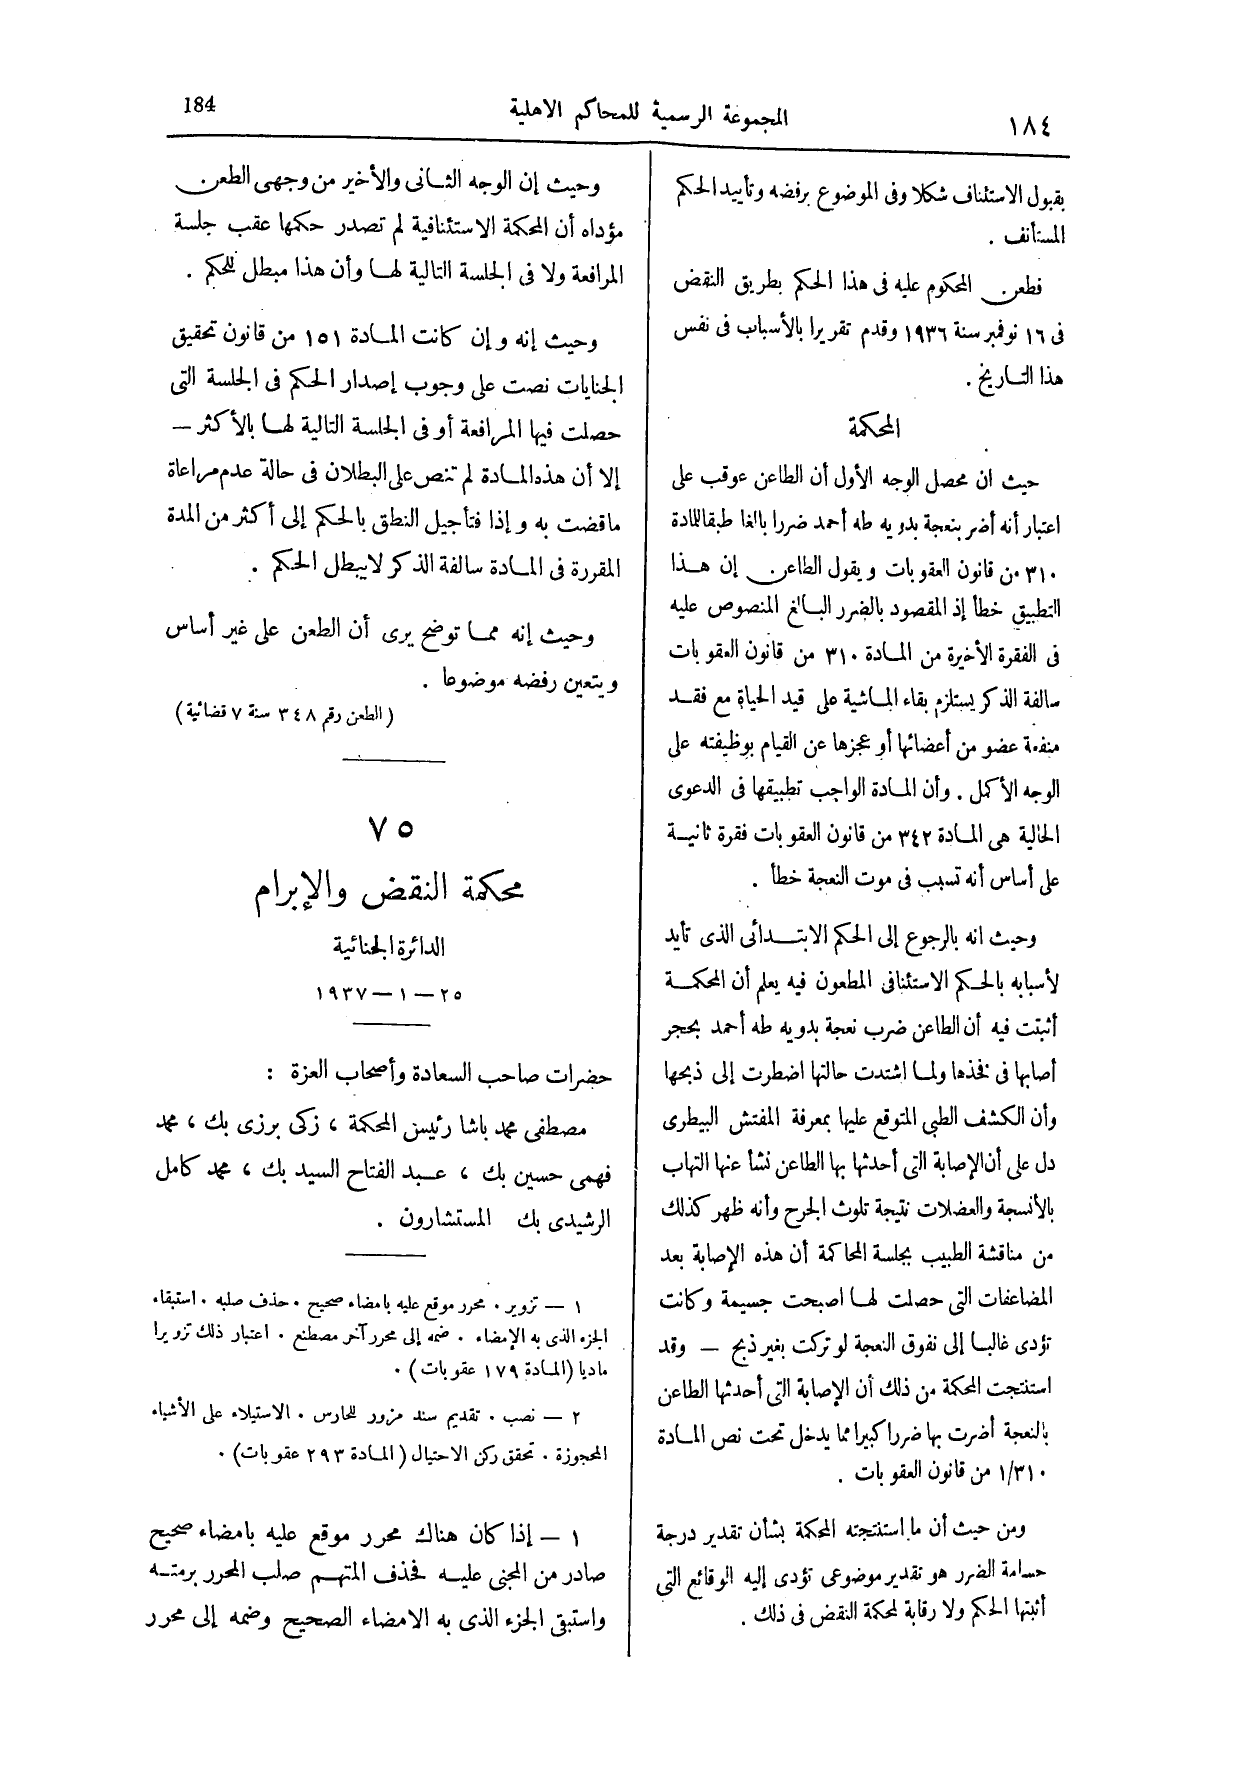 ١٨٤
المجموعة الرسمية للمحاكم الاهلية
184
بقبول الاستئناف شكلا وفى الموضوع برفضه وتأييد الحكم
المستأنف .
فطعن المحكوم عليه فى هذا الحكم بطريق النقض
فى ١٦ نوفمبر سنة ١٩٣٦ وقدم تقريرا بالأسباب فى نفس
هذا التاريخ .
المحكمة
حيث ان محصل الوجه الأول أن الطاعن عوقب على
اعتبار أنه أضر بنعجة بدويه طه أحمد ضررا بالغا طبقا للمادة
٣١٠ من قانون العقوبات ويقول الطاعن إن هذا
التطبيق خطأ إذ المقصود بالضرر البالغ المنصوص عليه
فى الفقرة الأخيرة من المادة ٣١٠ من قانون العقوبات
سالفة الذكر يستلزم بقاء الماشية على قيد الحياة مع فقد
منفعة عضو من أعضائها أو عجزها عن القيام بوظيفته على
الوجه الأكمل . وأن المادة الواجب تطبيقها فى الدعوى
الحالية هى المادة ٣٤٢ من قانون العقوبات فقرة ثانية
على أساس أنه تسبب فى موت النعجة خطأ .
وحيث انه بالرجوع إلى الحكم الابتدائى الذى تأيد
لأسبابه بالحكم الاستئنافى المطعون فيه يعلم أن المحكمة
أثبتت فيه أن الطاعن ضرب نعجة بدويه طه أحمد بحجر
أصابها فى فخذها ولما اشتدت حالتها اضطرت إلى ذبحها
وأن الكشف الطبى المتوقع عليها بمعرفة المفتش البيطرى
دل على أن الإصابة التى أحدثها بها الطاعن نشأ عنها التهاب
بالأنسجة والعضلات نتيجة تلوث الجرح وأنه ظهر كذلك
من مناقشة الطبيب بجلسة المحاكمة أن هذه الإصابة بعد
المضاعفات التى حصلت لها اصبحت جسيمة وكانت
تؤدى غالبا إلى نفوق النعجة لو تركت بغير ذبح — وقد
استنتجت المحكمة من ذلك أن الإصابة التى أحدثها الطاعن
بالنعجة أضرت بها ضررا كبيرا مما يدخل تحت نص المادة
١/٣١٠ من قانون العقوبات .
ومن حيث أن ما استنتجته المحكمة بشأن تقدير درجة
جسامة الضرر هو تقدير موضوعى تؤدى إليه الوقائع التى
أثبتها الحكم ولا رقابة لمحكمة النقض فى ذلك .
وحيث إن الوجه الثانى والأخير من وجهى الطعن
مؤداه أن المحكمة الاستئنافية لم تصدر حكمها عقب جلسة
المرافعة ولا فى الجلسة التالية لها وأن هذا مبطل للحكم .
وحيث إنه وإن كانت المادة ١٥١ من قانون تحقيق
الجنايات نصت على وجوب إصدار الحكم فى الجلسة التى
حصلت فيها المرافعة أو فى الجلسة التالية لها بالأكثر —
إلا أن هذه المادة لم تنص على البطلان فى حالة عدم مراعاة
ما قضت به وإذا فتأجيل النطق بالحكم إلى أكثر من المدة
المقررة فى المادة سالفة الذكر لا يبطل الحكم .
وحيث إنه مما توضح يرى أن الطعن على غير أساس
ويتعين رفضه موضوعا .
(الطعن رقم ٣٤٨ سنة ٧ قضائية)
٧٥
محكمة النقض والإبرام
الدائرة الجنائية
٢٥ — ١ — ١٩٣٧
حضرات صاحب السعادة وأصحاب العزة :
مصطفى محمد باشا رئيس المحكمة ، زكى برزى بك ، محمد
فهمى حسين بك ، عبد الفتاح السيد بك ، محمد كامل
الرشيدى بك المستشارون .
١ — تزوير . محرر موقع عليه بامضاء صحيح . حذف صلبه . استبقاء
الجزء الذى به الإمضاء . ضمه إلى محرر آخر مصطنع . اعتبار ذلك تزويرا
ماديا (المادة ١٧٩ عقوبات) .
٢ — نصب . تقديم سند مزور للحارس . الاستيلاء على الأشياء
المحجوزة . تحقق ركن الاحتيال (المادة ٢٩٣ عقوبات) .
١ — إذا كان هناك محرر موقع عليه بامضاء صحيح
صادر من المجنى عليه فحذف المتهم صلب المحرر برمته
واستبقى الجزء الذى به الامضاء الصحيح وضمه إلى محرر